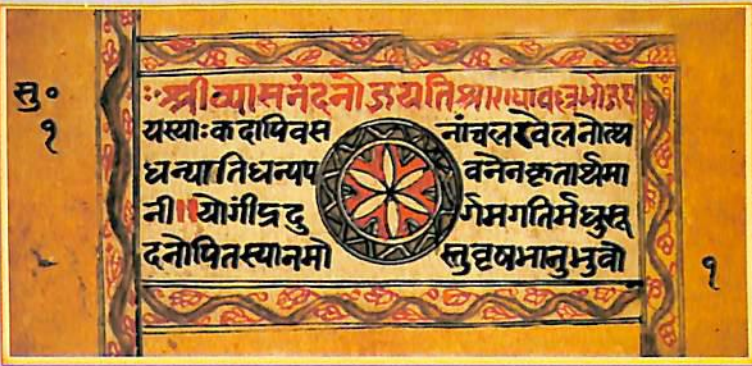 सु०
१
श्रीव्यासनंदनोजयति श्रीराधावल्लभोजय
यस्याःकदापिवस नांचलखेलनोत्थ
धन्यातिधन्यप वनेनकृतार्थमा
नी॥योगींद्रदु र्गमगतिर्मधुसू
दनोपितस्यानमो स्तुवृषभानुभुवो
१